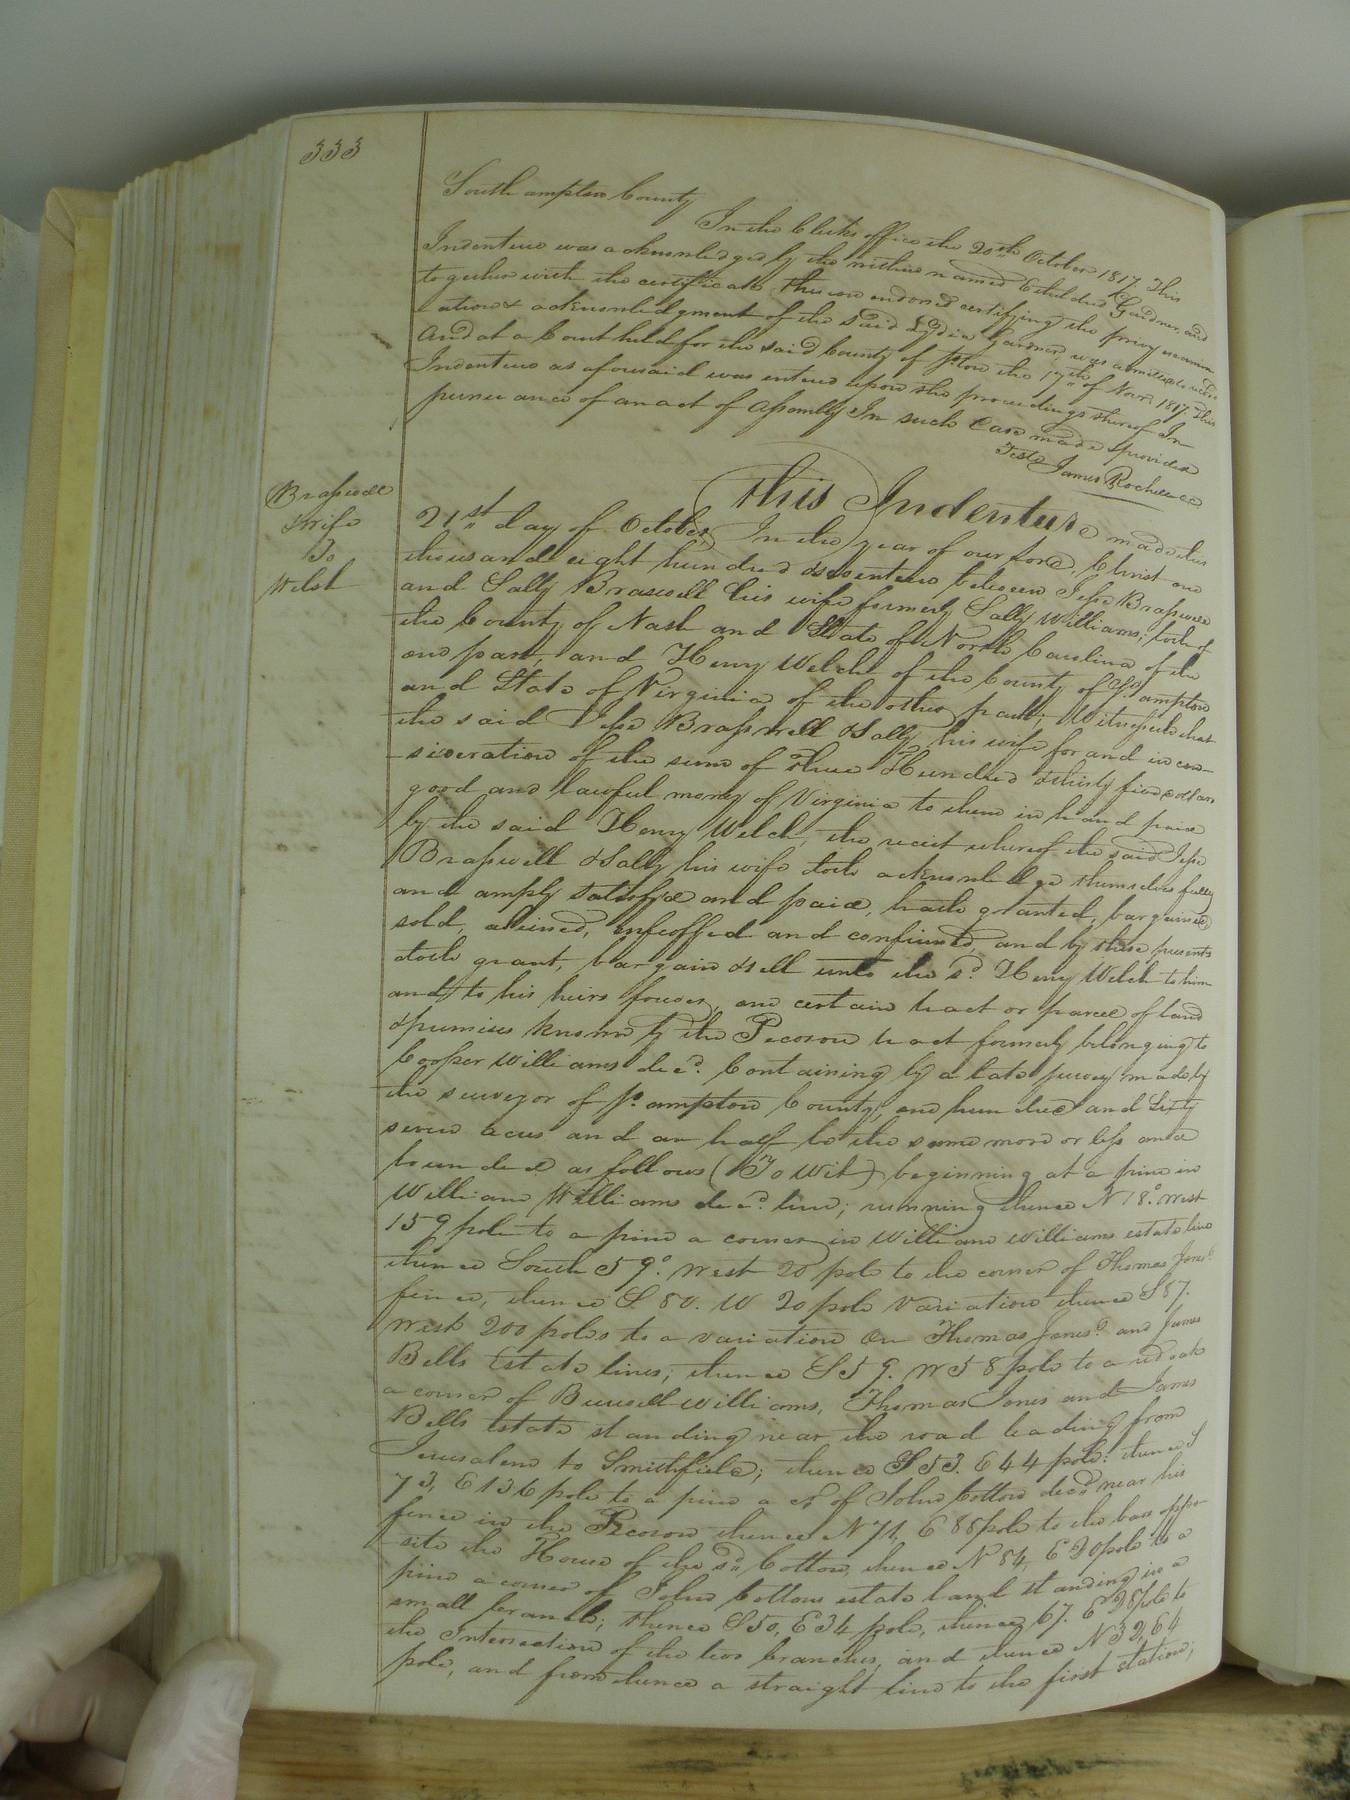 333
South ampton County
In the Clerks office the 20th October 1817. This
Indenture was acknowledged by the within named Etheldred Gardner, and
together with the certificate thereon endorsed certifying the privy examin
ation & acknowledgment of the said Lydia Gardner was admitted to record
And at a Court held for the said County of pton the 17th of Novr. 1817. This
Indenture as aforesaid was entered upon the proceedings thereof In
pursuance of an act of Assembly In such Case made & provided
Teste James Rochelle CC
Braswell
& wife
To
Welch
This Indenture made this
21st day of October, In the year of our Lord, Christ one
thousand eight hundred & seventeen between Jesse Braswell
and Sally Braswell his wife formerly Sally Williams; both of
the County of Nash and State of North Carolina of the
one part, and Henry Welch of the County of So. ampton
and State of Virginia of the other part; Witnesseth that
the said Jesse Braswell & Sally his wife for and in con-
-sideration of the sum of Three Hundred & thirty five dollars
good and lawful money of Virginia to them in hand paid
by the said Henry Welch, the receit whereof the said Jesse
Braswell & Sally his wife doth acknowledge themselves fully
and amply satisfied and paid, hath granted, bargained,
sold, aliened, enfeoffed and confirmed, and by these presents
doth grant, bargain & sell unto the sd. Henry Welch to him
and to his heirs forever, one certain tract or parcel of land
& premises known by the Pocoson tract formerly belonging to
Cooper Williams decd. Containing by a late survey made by
the surveyor of So. ampton County, one hundred and Sixty
seven acres and an half be the same more or less and
bounded as follows (To Wit) beginning at a pine in
William Williams decd. line; running thence N 18.° West
159 pole to a pine a corner in William Williams estate line
thence South 59°. West 20 pole to the corner of Thomas Jones'
fence, thence S. 80. W 20 pole variation thence S 87.
West 200 poles to a variation On Thomas Jones's and James
Bells Estate lines; thence S 59. W 58 pole to a red oak
a corner of Burwell Williams, Thomas Jones and James
Bells Estate standing near the road leading from
Jerusalem to Smithfield; thence S 53. E 44 pole: thence S
73, E 136 pole to a pine a cr. of John Cotton decd near his
fence in the Pocoson thence N 71, E 88 pole to the bars oppo-
site the House of the sd. Cotton, thence N 84, E 20 pole to a
pine a corner of John Cottons estate land standing in a
small branch; thence S 50, E 34 pole, thence 67. E 28 pole to
the Intersection of the two branches, and thence N 32, 64
pole, and from thence a straight line to the first station;